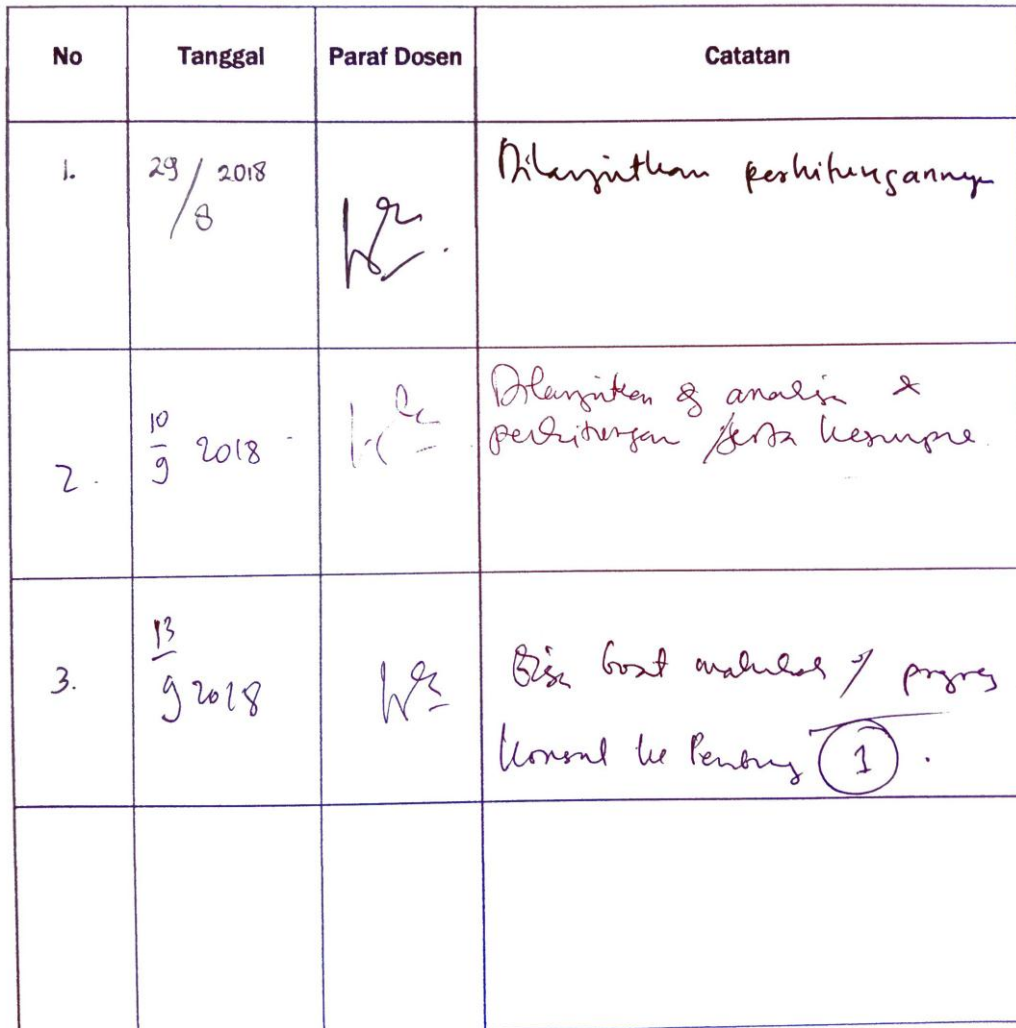 No Tanggal Paraf Dosen Catatan
1. 29/8 2018 Dilanjutkan perhitungannya
2. 10/9 2018 Dilanjutkan & analisa &
perhitungan serta
3. 13/9 2018 Bisa buat progres
Konsul ke Pembimg 1.